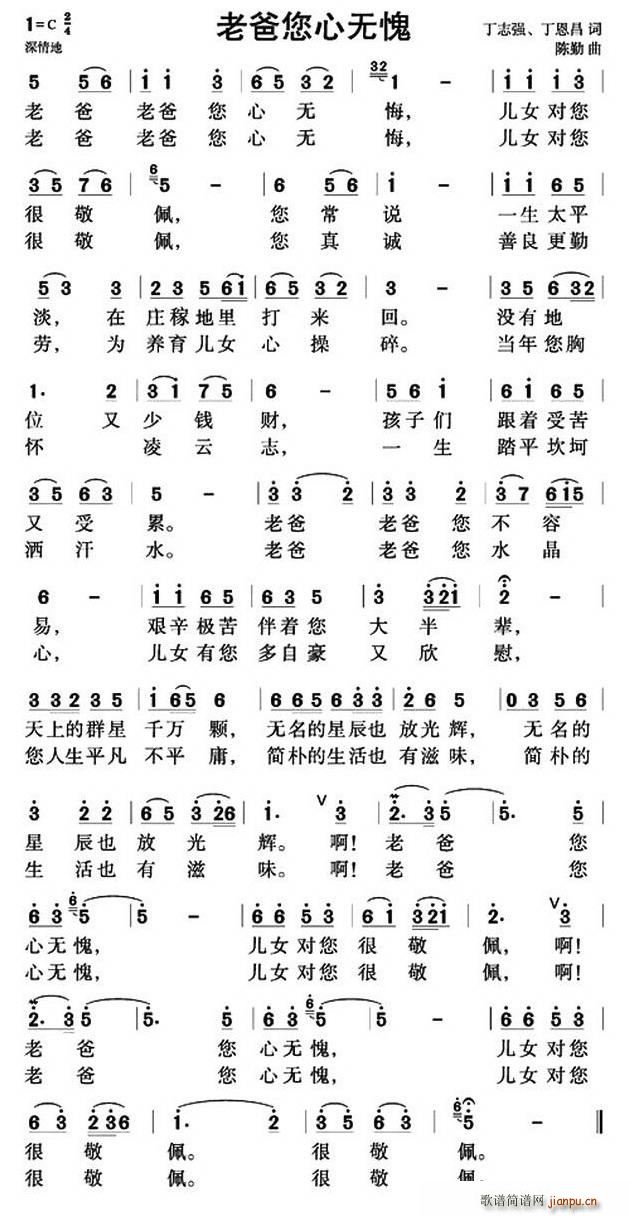 老爸您心无愧
1=C 2/4
深情地
丁志强、丁恩昌 词
陈勤 曲
5 5 6 | i i 3 | 6 5 3 2 | 32 1 - | i i 3 2 |
老 爸 老爸 您 心 无 悔, 儿女 对您
老 爸 老爸 您 心 无 悔, 儿女 对您
3 5 7 6 | 6 5 - | 6 5 6 | i - | i i 6 5 |
很 敬 佩, 您 常 说 一生 太平
很 敬 佩, 您 真 诚 善良 更勤
5 3 3 | 2 3 5 6i | 6 5 3 2 | 3 - | 3 5 6 32 |
淡, 在 庄稼 地里 打 来 回。 没有 地
劳, 为 养育 儿女 心 操 碎。 当年 您胸
1. 2 | 3 1 7 5 | 6 - | 5 6 i | 6 i 6 5 |
位 又 少 钱 财, 孩子 们 跟着 受苦
怀 凌 云 志, 一 生 踏平 坎坷
3 5 6 3 | 5 - | 3 3 2 | 3 3 2 | 3 7 6i5 |
又 受 累。 老爸 老爸 您 不 容
洒 汗 水。 老爸 老爸 您 水 晶
6 - | i i 6 5 | 6 3 5 | 3 32i | 2 - |
易, 艰辛 极苦 伴着 您 大 半 辈,
心, 儿女 有您 多自 豪 又 欣 慰,
3 32 3 5 | i 65 6 | 6 65 6 33 | 2 6 5 | 03 5 6 |
天上的 群星 千万 颗, 无名的 星辰也 放光 辉, 无名的
您人生 平凡 不平 庸, 简朴的 生活也 有滋 味, 简朴的
3 2 2 | 6 5 3 26 | i. V 3 | 2. 3 5 | 5. 5 |
星 辰也 放 光 辉。 啊! 老 爸 您
生 活也 有 滋 味。 啊! 老 爸 您
6 3 6 5 | 5 - | 6 6 5 3 | 6 i 32i | 2. V 3 |
心无 愧, 儿女 对您 很 敬 佩, 啊!
心无 愧, 儿女 对您 很 敬 佩, 啊!
2. 3 5 | 5. 5 | 6 3 6 5 | 5 - | 6 6 5 3 |
老 爸 您 心无 愧, 儿女 对您
老 爸 您 心无 愧, 儿女 对您
6 3 236 | i. 2 | 3 2 3 | 6 5 - ‖
很 敬 佩。 很 敬 佩。
很 敬 佩。 很 敬 佩。
歌谱简谱网
jianpu.cn